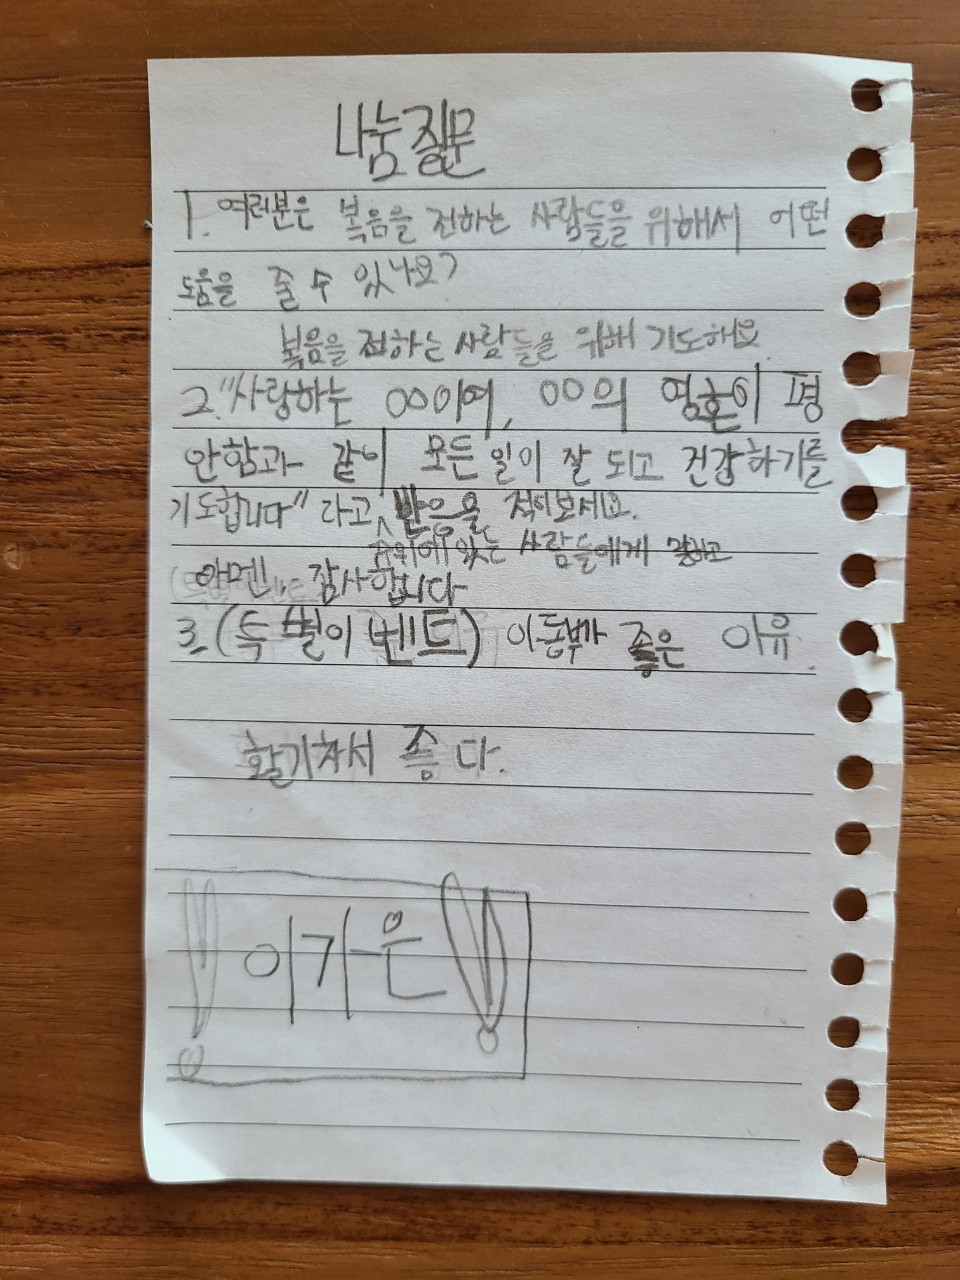 나눔질문
1. 여러분은 복음을 전하는 사람들을 위해서 어떤
도움을 줄 수 있나요?
복음을 전하는 사람들을 위해 기도해요
2. "사랑하는 OO이여, OO의 영혼이 평
안함과 같이 모든 일이 잘 되고 건강하기를
기도합니다" 라고 반응을 적어보세요.
주위에 있는 사람들에게 말하고
아멘, 감사합니다
3. (특별이벤트) 아동부가 좋은 이유.
활기차서 좋다.
! 이가은 !